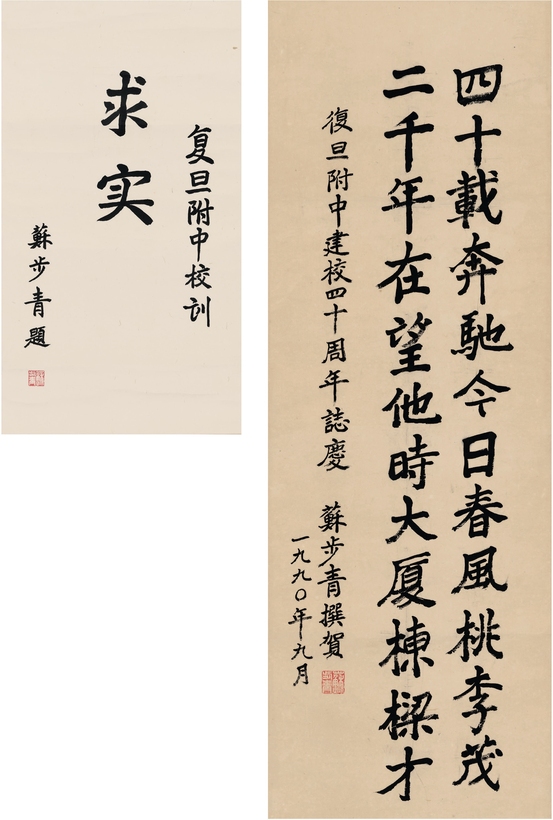 复旦附中校训
求实
蘇步青題
四十載奔馳今日春風桃李茂
二千年在望他時大厦棟樑才
復旦附中建校四十周年誌慶 蘇步青撰賀
一九九〇年九月